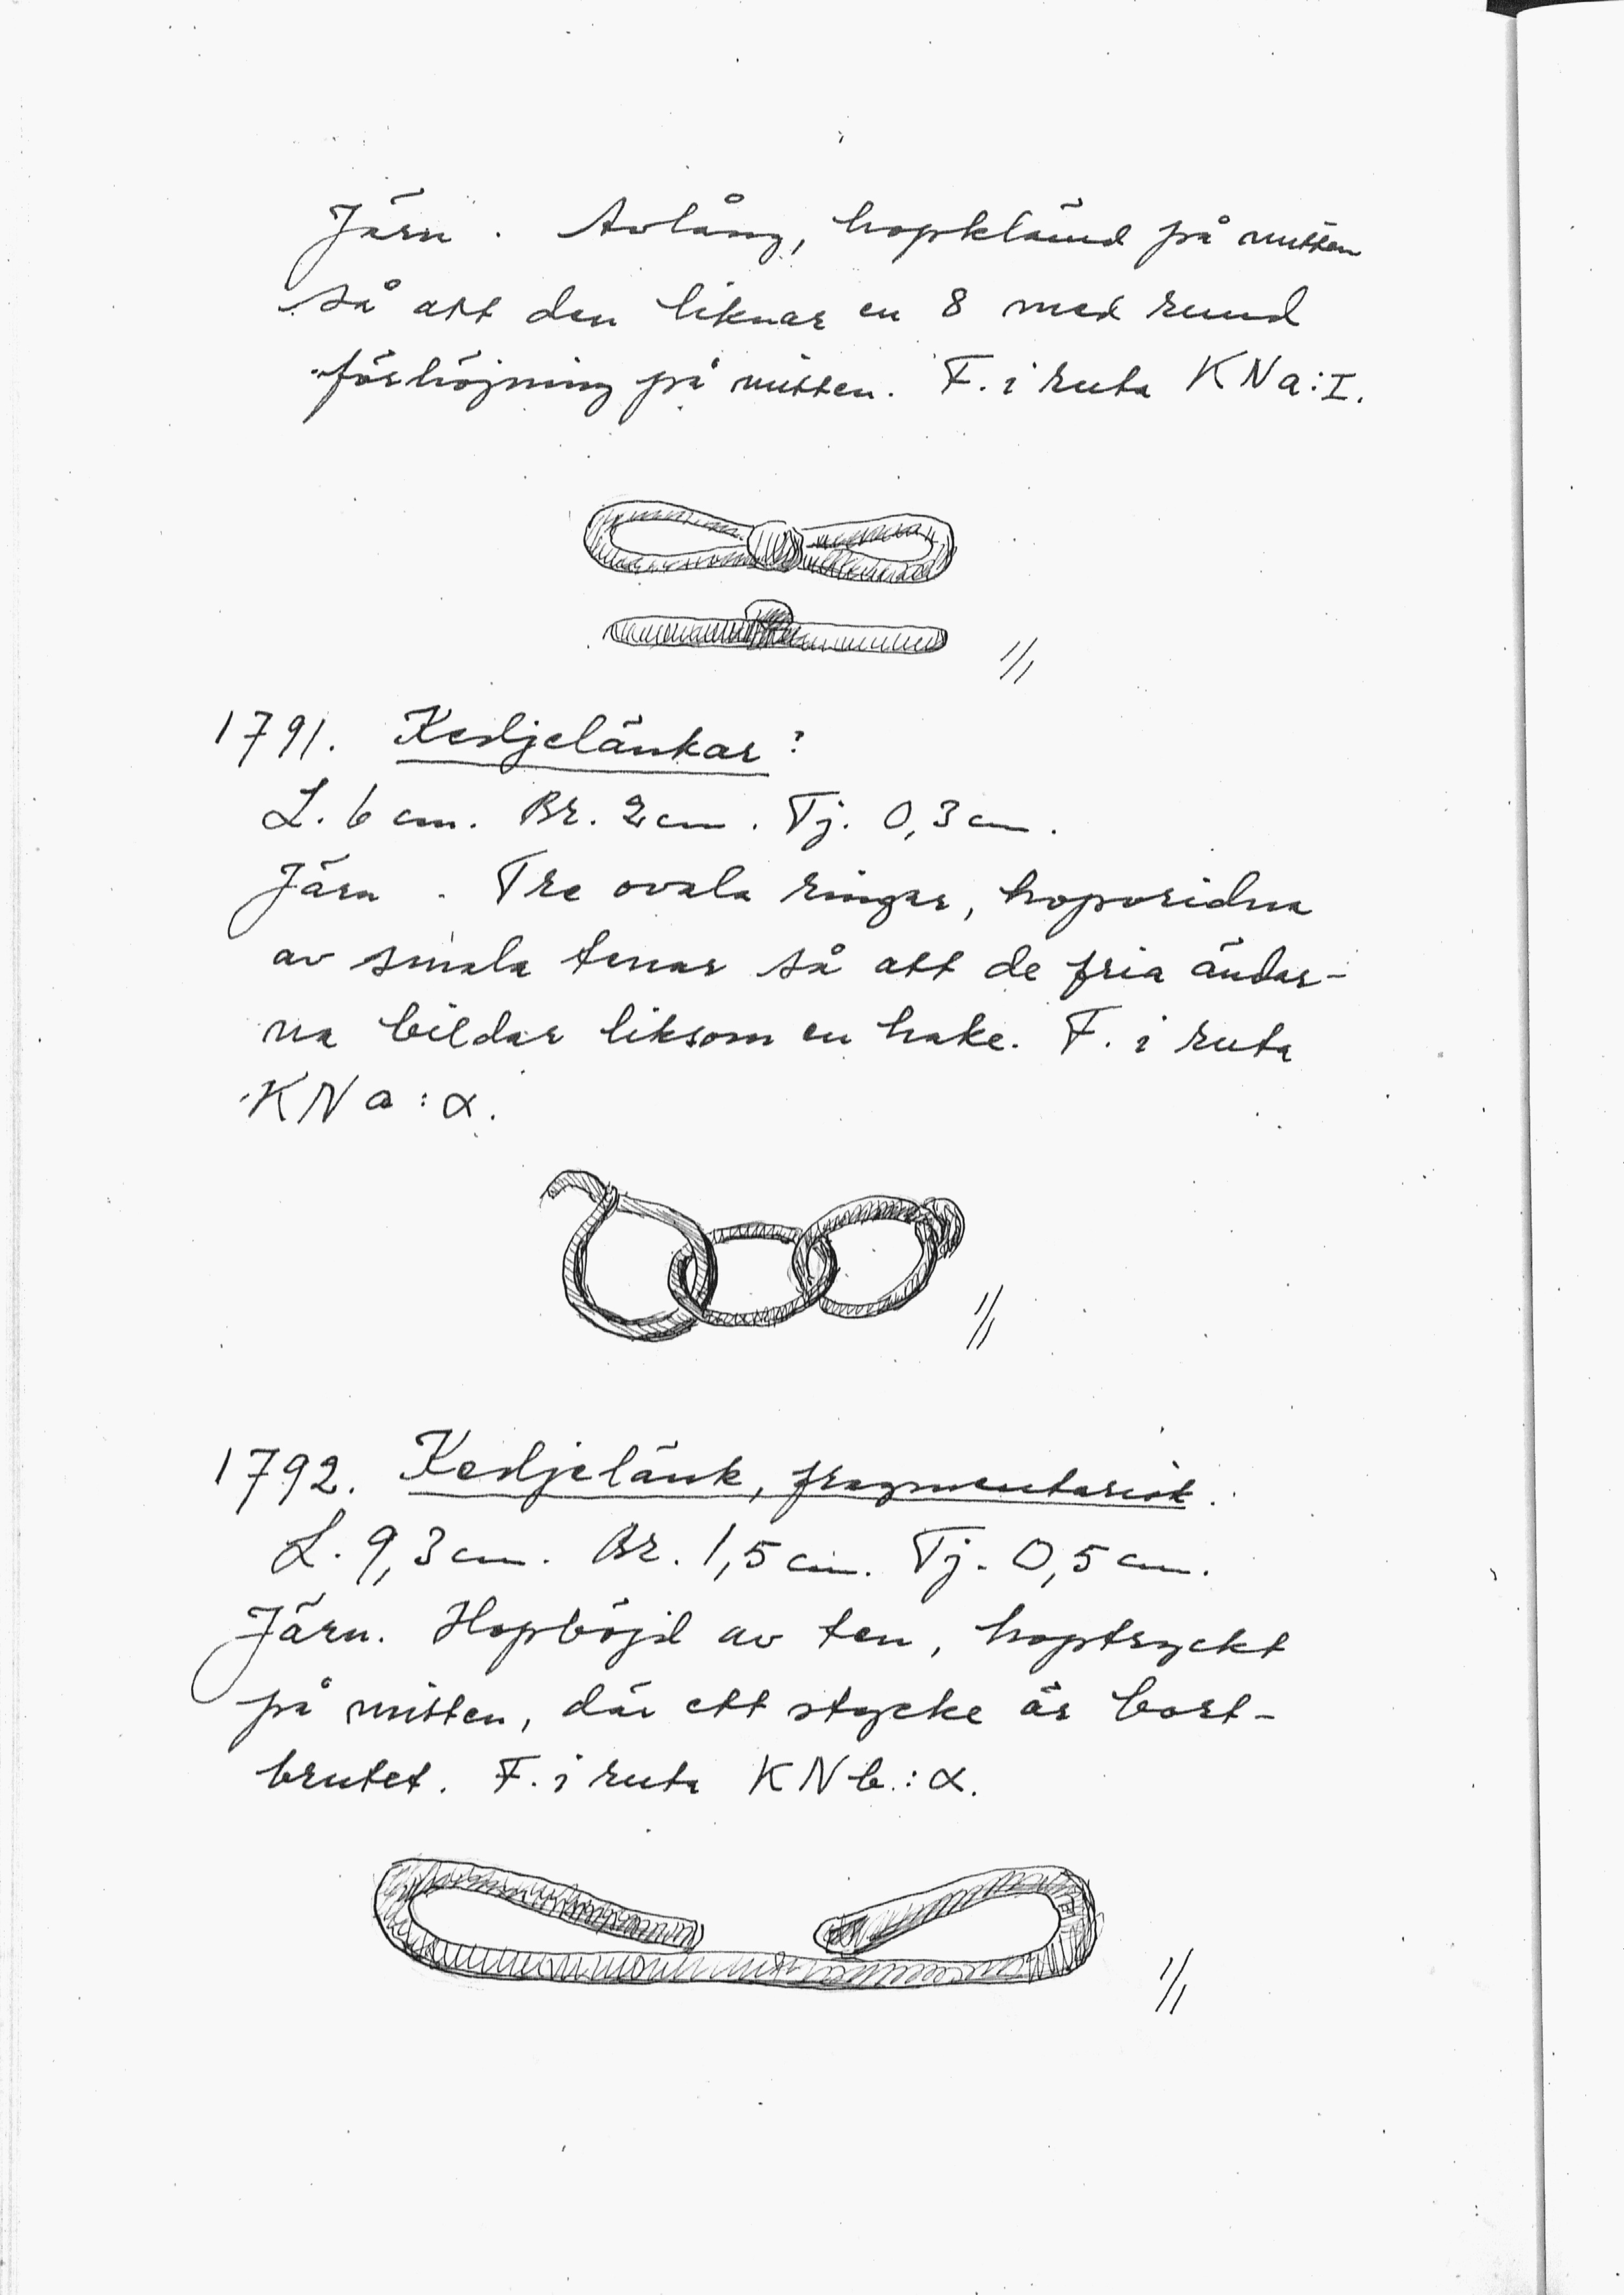 Järn. Avlång, hopklämd på mitten
så att den liknar en 8 med rund
förhöjning på mitten. F. i ruta KNa:I.
1/1
1791. Kedjelänkar?
L. 6 cm. Br. 2 cm. Tj. 0,3 cm.
Järn. Tre ovala ringar, hopvridna
av smala tenar så att de fria ändar-
na bildar liksom en hake. F. i ruta
KNa:α.
1/1
1792. Kedjelänk, fragmentarisk.
L. 9,3 cm. Br. 1,5 cm. Tj. 0,5 cm.
Järn. Hopböjd av ten, hoptryckt
på mitten, där ett stycke är bort-
brutet. F. i ruta KNb:α.
1/1